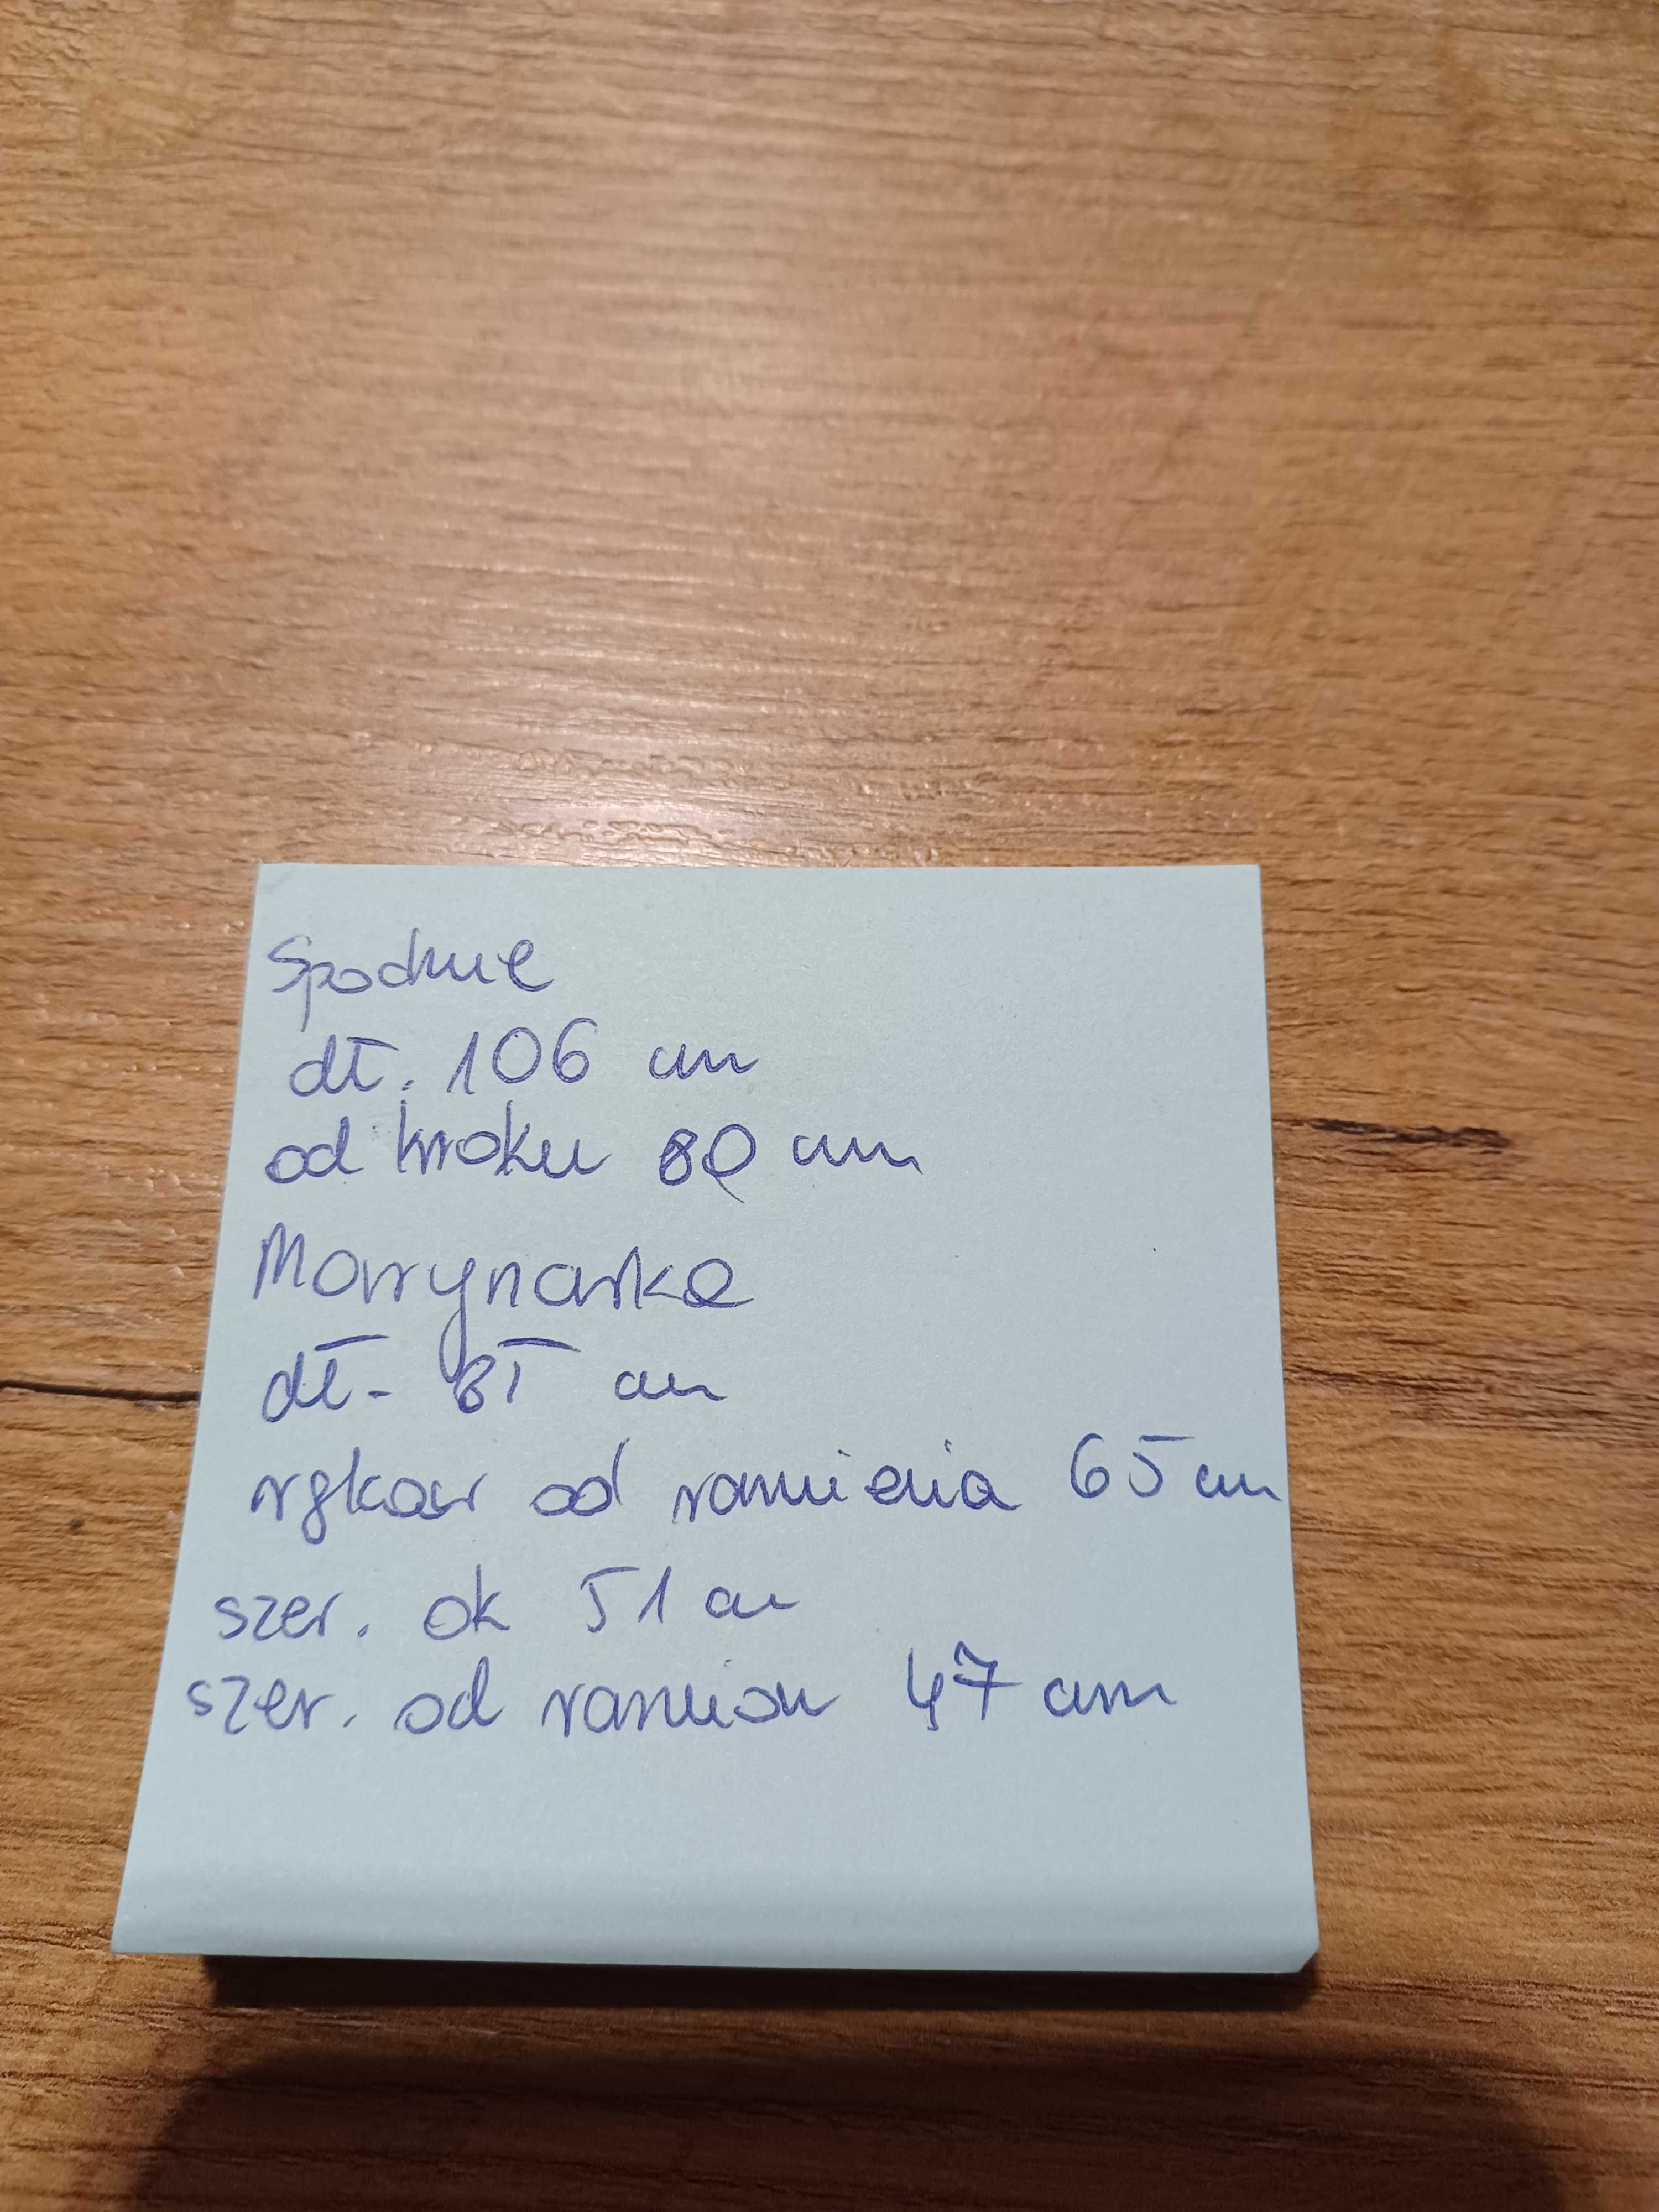 Spodnie
dł. 106 cm
od kroku 80 cm
Marynarka
dł - 81 cm
rękaw od ramienia 65 cm
szer. ok 51 cm
szer. od ramion 47 cm